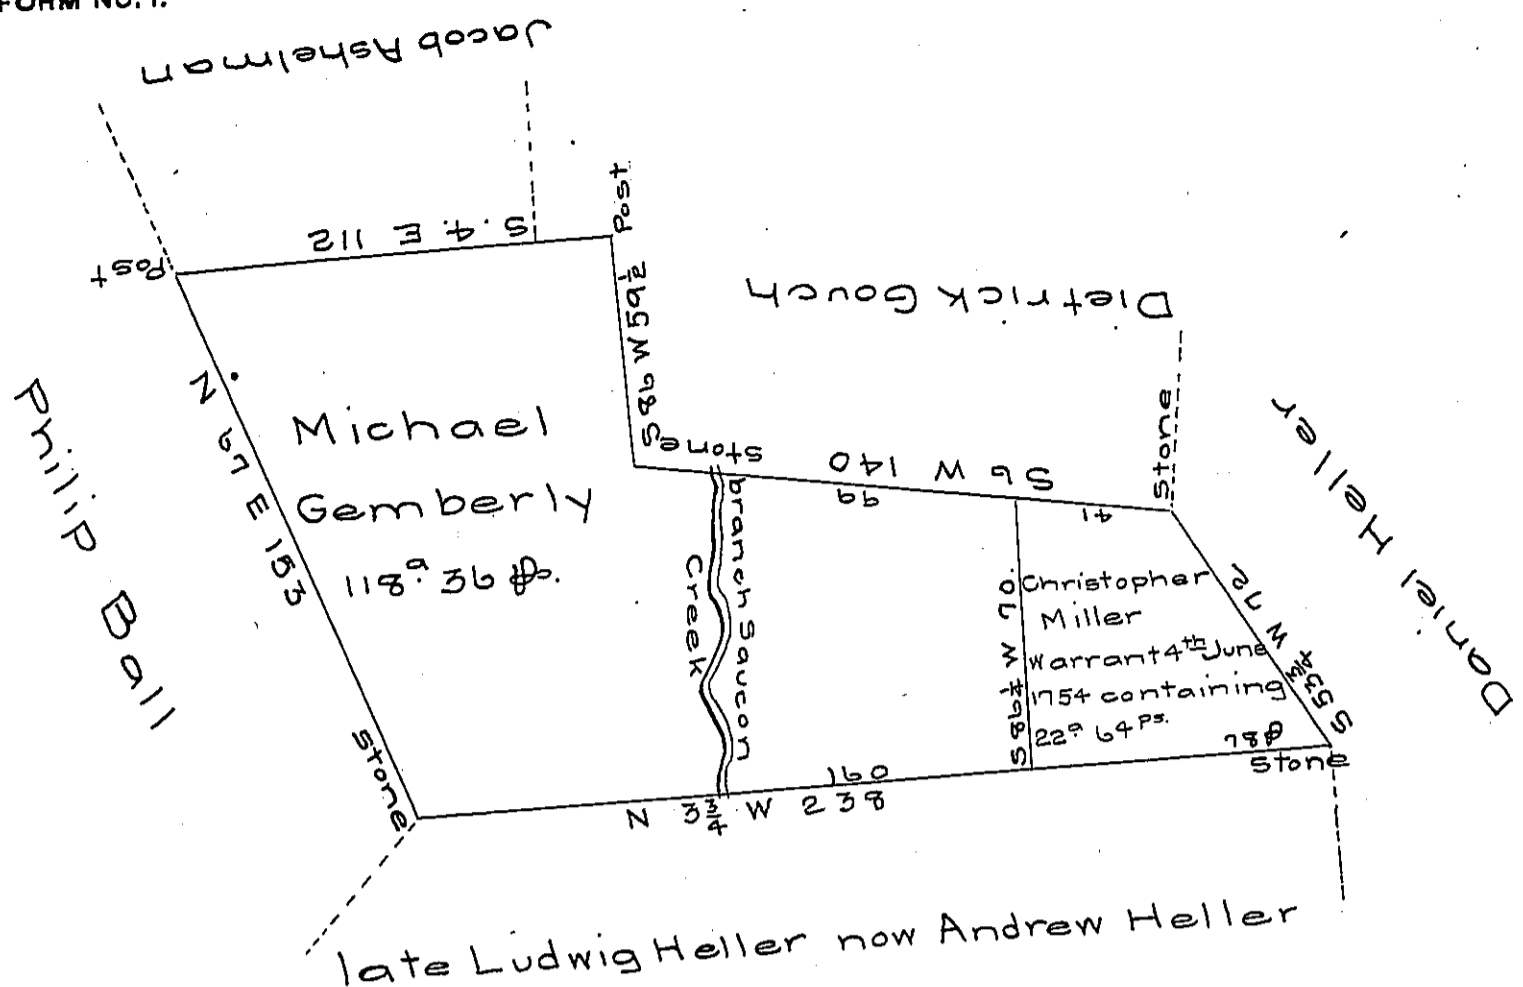 FORM NO. 1.
Jacob Ashelman
Post
S. 4. E 112
Post
S 86 W 59½
Dietrick Gouch
Philip Ball
N 67 E 153
Michael
Gemberly
118ᵃ. 36 ps.
Stone
S 6 W 140
99
41
Stone
Daniel Heller
branch Saucon
Creek
S 86¼ W 70.
Christopher
Miller
Warrant 4th June
1754 containing
22ᵃ 64 ps.
S 53¾ W 72
78 p
Stone
Stone
160
N 3¾ W 238
late Ludwig Heller now Andrew Heller